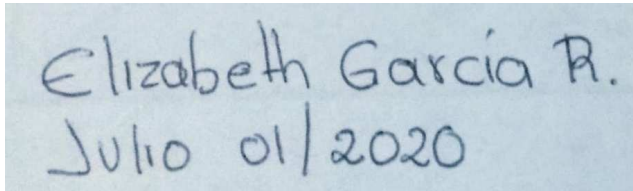 Elizabeth García R.
Julio 01/2020